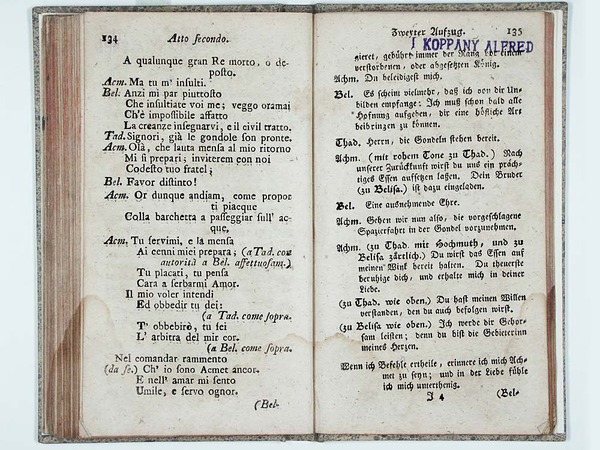 134 Atto secondo.
A qualunque gran Re morto, o de-
posto.
Acm. Ma tu m' insulti.
Bel. Anzi mi par piuttosto
Che insultiate voi me; veggo oramai
Ch'è impossibile affatto
La creanze insegnarvi, e il civil tratto.
Tad. Signori, già le gondole son pronte.
Acm. Olà, che lauta mensa al mio ritorno
Mi si prepari; inviterem con noi
Codesto tuo fratel;
Bel. Favor distinto!
Acm. Or dunque andiam, come propor
ti piacque
Colla barchetta a passeggiar sull' ac-
que,
Acm. Tu servimi, e la mensa
Ai cenni miei prepara; (a Tad. con
autorità a Bel. affettuosam.)
Tu placati, tu pensa
Cara a serbarmi Amor.
Il mio voler intendi
Ed obbedir tu dei:
(a Tad. come sopra.
T' obbebirò, tu sei
L' arbitra del mir cor.
(a Bel. come sopra.
Nel comandar rammento
(da se.) Ch' io sono Acmet ancor.
E nell' amar mi sento
Umile, e servo ognor.
(Bel-
Zweyter Aufzug. 135
I KOPPANY ALFRED
gieret, gebührt immer der Rang vor einem
verstorbenen, oder abgesetzten König.
Achm. Du beleidigest mich.
Bel. Es scheint vielmehr, daß ich von dir Un-
bilden empfange: Ich muß schon bald alle
Hofnung aufgeben, dir eine höfliche Art
beibringen zu können.
Thad. Herrn, die Gondeln stehen bereit.
Achm. (mit rohem Tone zu Thad.) Nach
unserer Zurückkunft wirst du uns ein präch-
tiges Essen aufsetzen laßen. Dein Bruder
(zu Belisa.) ist dazu eingeladen.
Bel. Eine ausnehmende Ehre.
Achm. Gehen wir nun also, die vorgeschlagene
Spazierfahrt in der Gondel vorzunehmen.
Achm. (zu Thad. mit Hochmuth, und zu
Belisa zärtlich.) Du wirst das Essen auf
meinen Wink bereit halten. Du theuerste
beruhige dich, und erhalte mich in deiner
Liebe.
(zu Thad. wie oben.) Du hast meinen Willen
verstanden, den du auch befolgen wirst.
(zu Belisa wie oben.) Ich werde dir Gehor-
sam leisten; denn du bist die Gebieterinn
meines Herzen.
Wenn ich Befehle ertheile, erinnere ich mich Ach-
met zu seyn; und in der Liebe fühle
ich mich unterthenig.
J 4 (Bel-